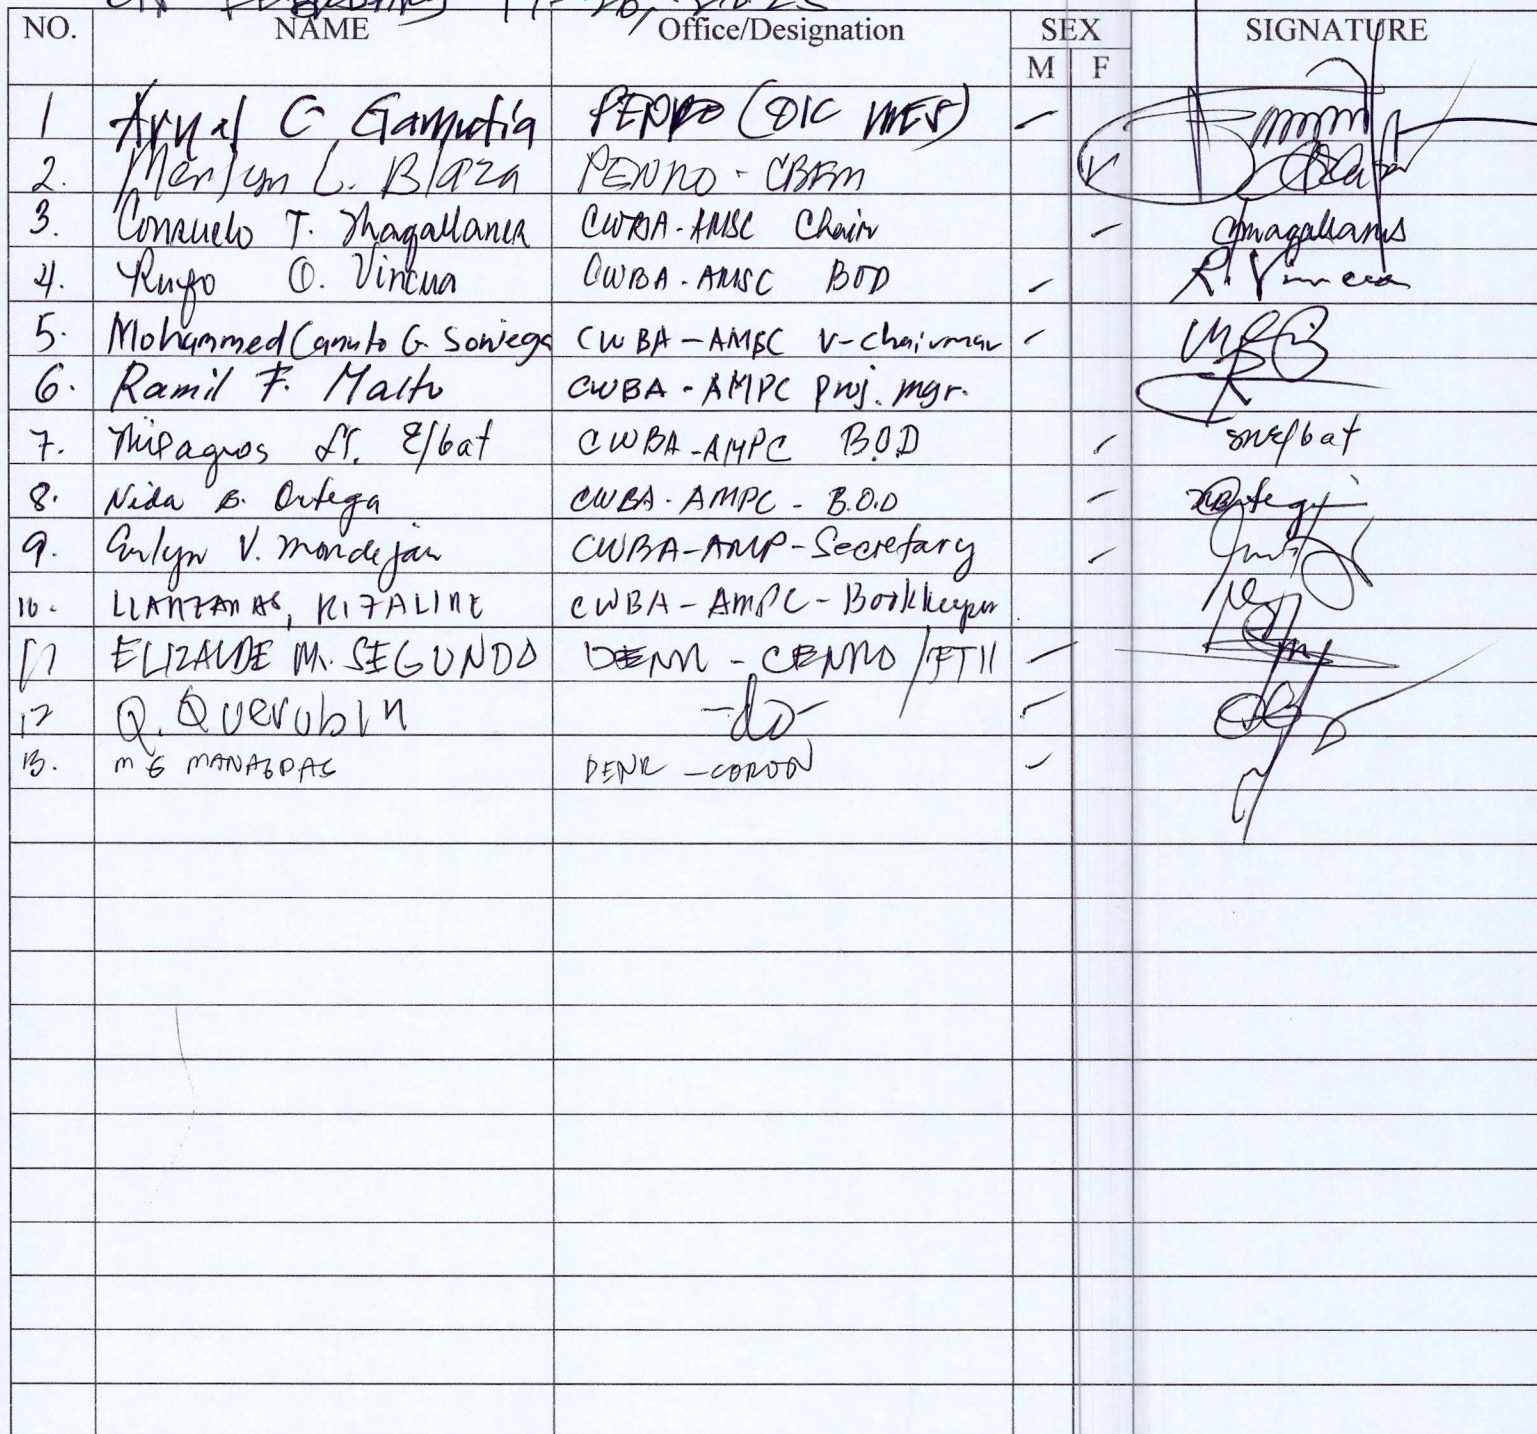 NO. NAME Office/Designation SEX SIGNATURE
M F
1 C Gamutia PENRO (OIC MES)
2. L. Blaza PENRO - CBFM
3. Consuelo T. Magallanes CWBA-AMSC Chair Cmagallanes
4. Rufo O. CWBA-AMSC BOD R.
5. Mohammed Canuto G. Soniega CWBA-AMSC V-Chairman
6. Ramil F. Malto CWBA-AMPC Proj. mgr.
7. Milagros Elbat CWBA-AMPC B.O.D smelbat
8. Nida B. Ortega CWBA-AMPC - B.O.D
9. V. Mondejar CWBA-AMP-Secretary
10. LLANZANAS, RIZALINE CWBA-AMPC-Bookkeeper
11 ELIZALDE M. SEGUNDO DENR - CENRO/FTII
12 Q. Querubin -do-
13. M G MANAGDAG DENR - CORON